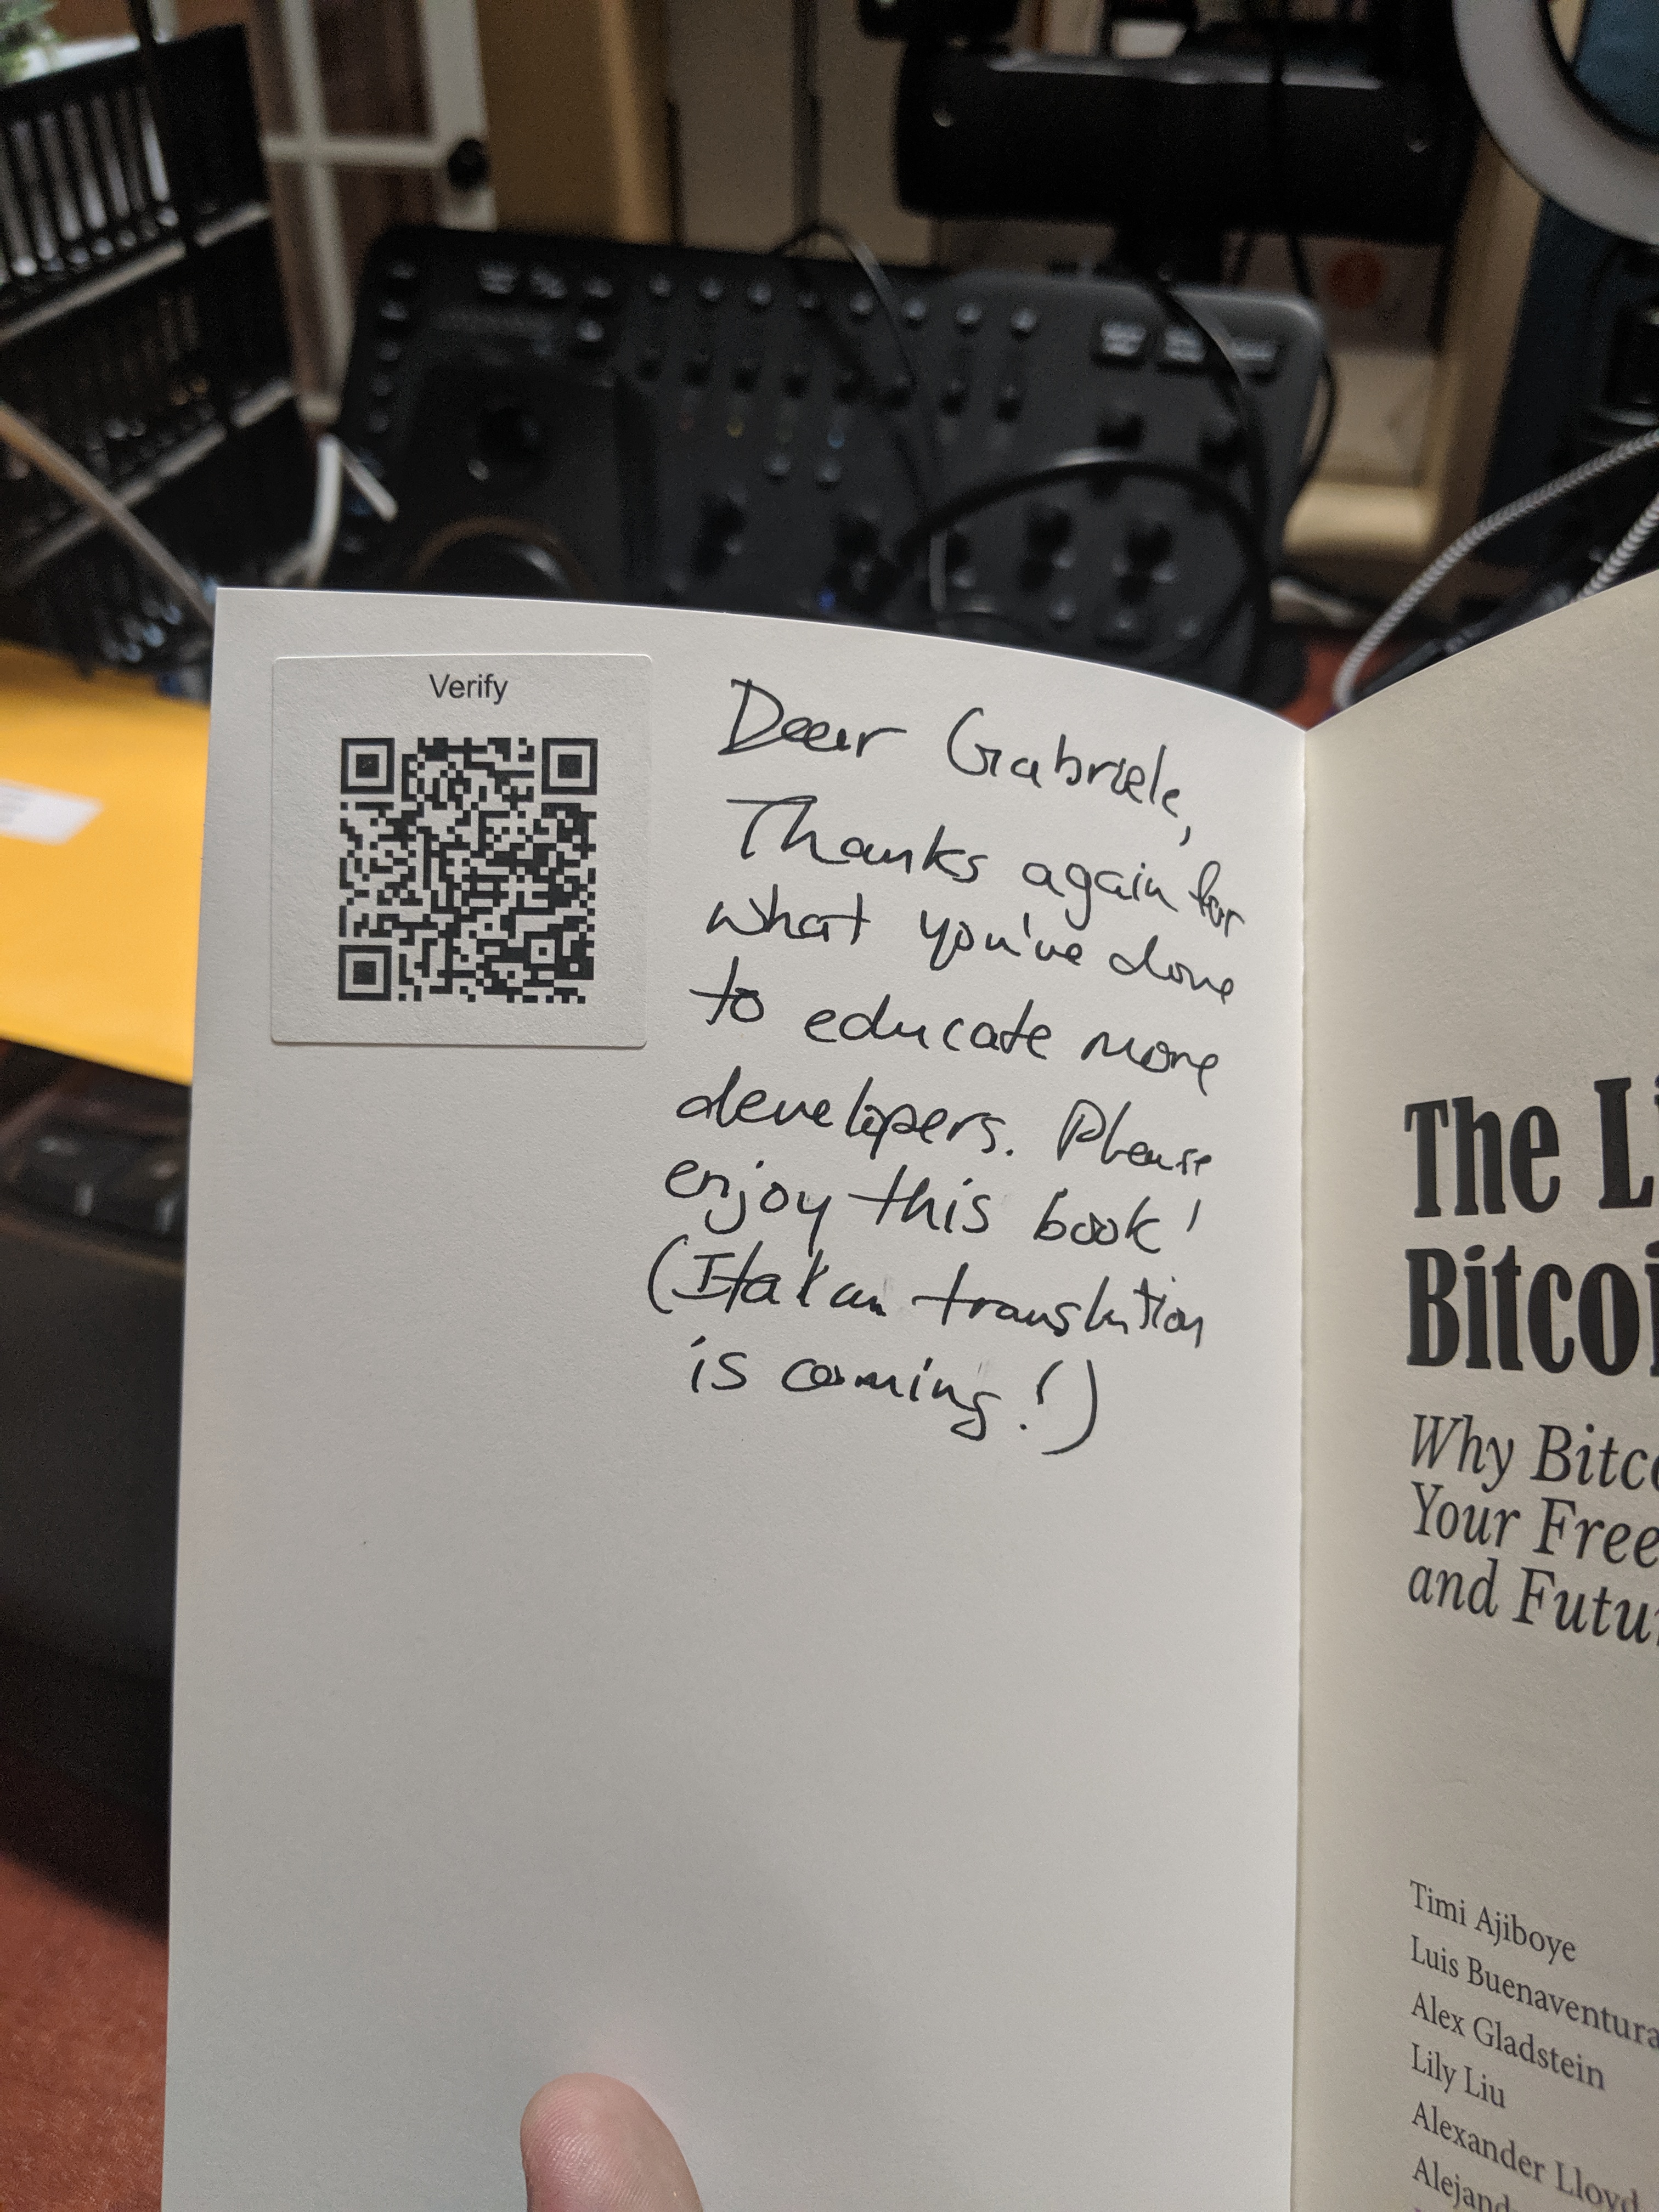 Verify
Dear Gabriele,
Thanks again for
what you've done
to educate more
developers. Please
enjoy this book!
(Italian translation
is coming!)
The Li
Bitcoi
Why Bitco
Your Free
and Futur
Timi Ajiboye
Luis Buenaventura
Alex Gladstein
Lily Liu
Alexander Lloyd
Alejand